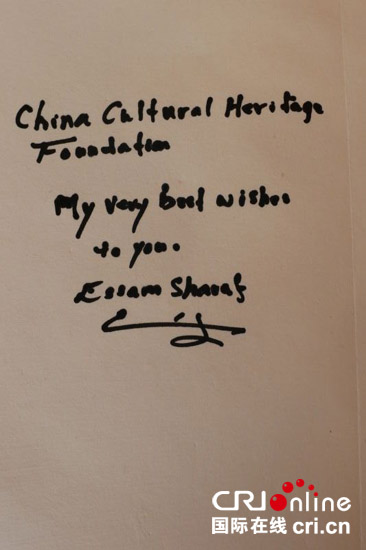 China Cultural Heritage
Foundation
My very best wishes
to you.
Essam Sharaf
CRIonline
国际在线 cri.cn